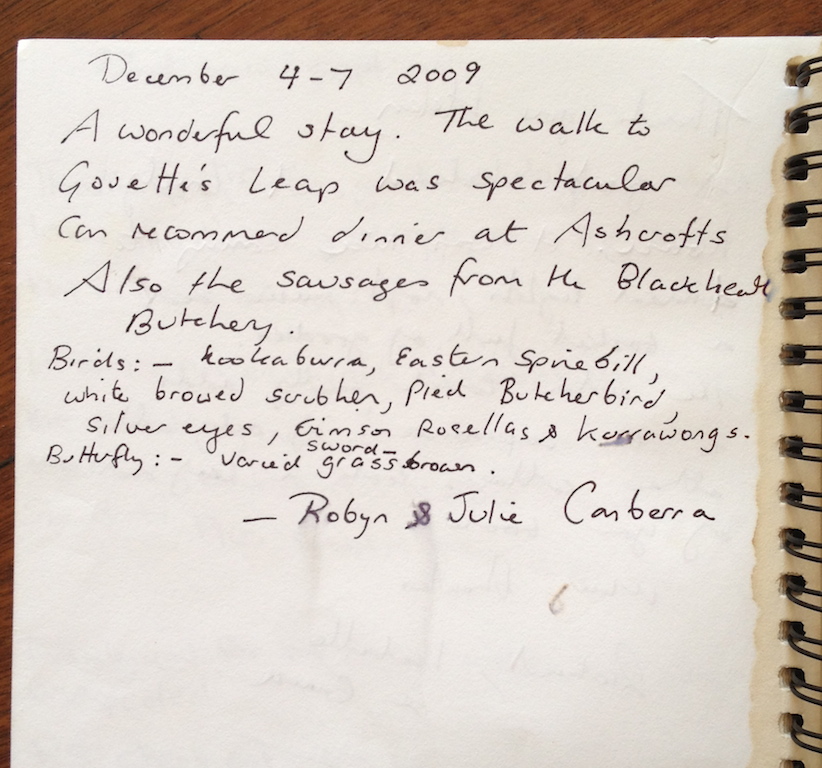 December 4-7 2009
A wonderful stay. The walk to
Govett's Leap was spectacular
Can recommend dinner at Ashcrofts
Also the sausages from the Blackheath
Butchery.
Birds:- kookaburra, Eastern Spinebill,
white browed scrubhen, Pied Butcherbird,
silver eyes, Crimson Rosellas & Kurrawongs.
Butterfly:- varied sword-grass brown.
- Robyn & Julie Canberra